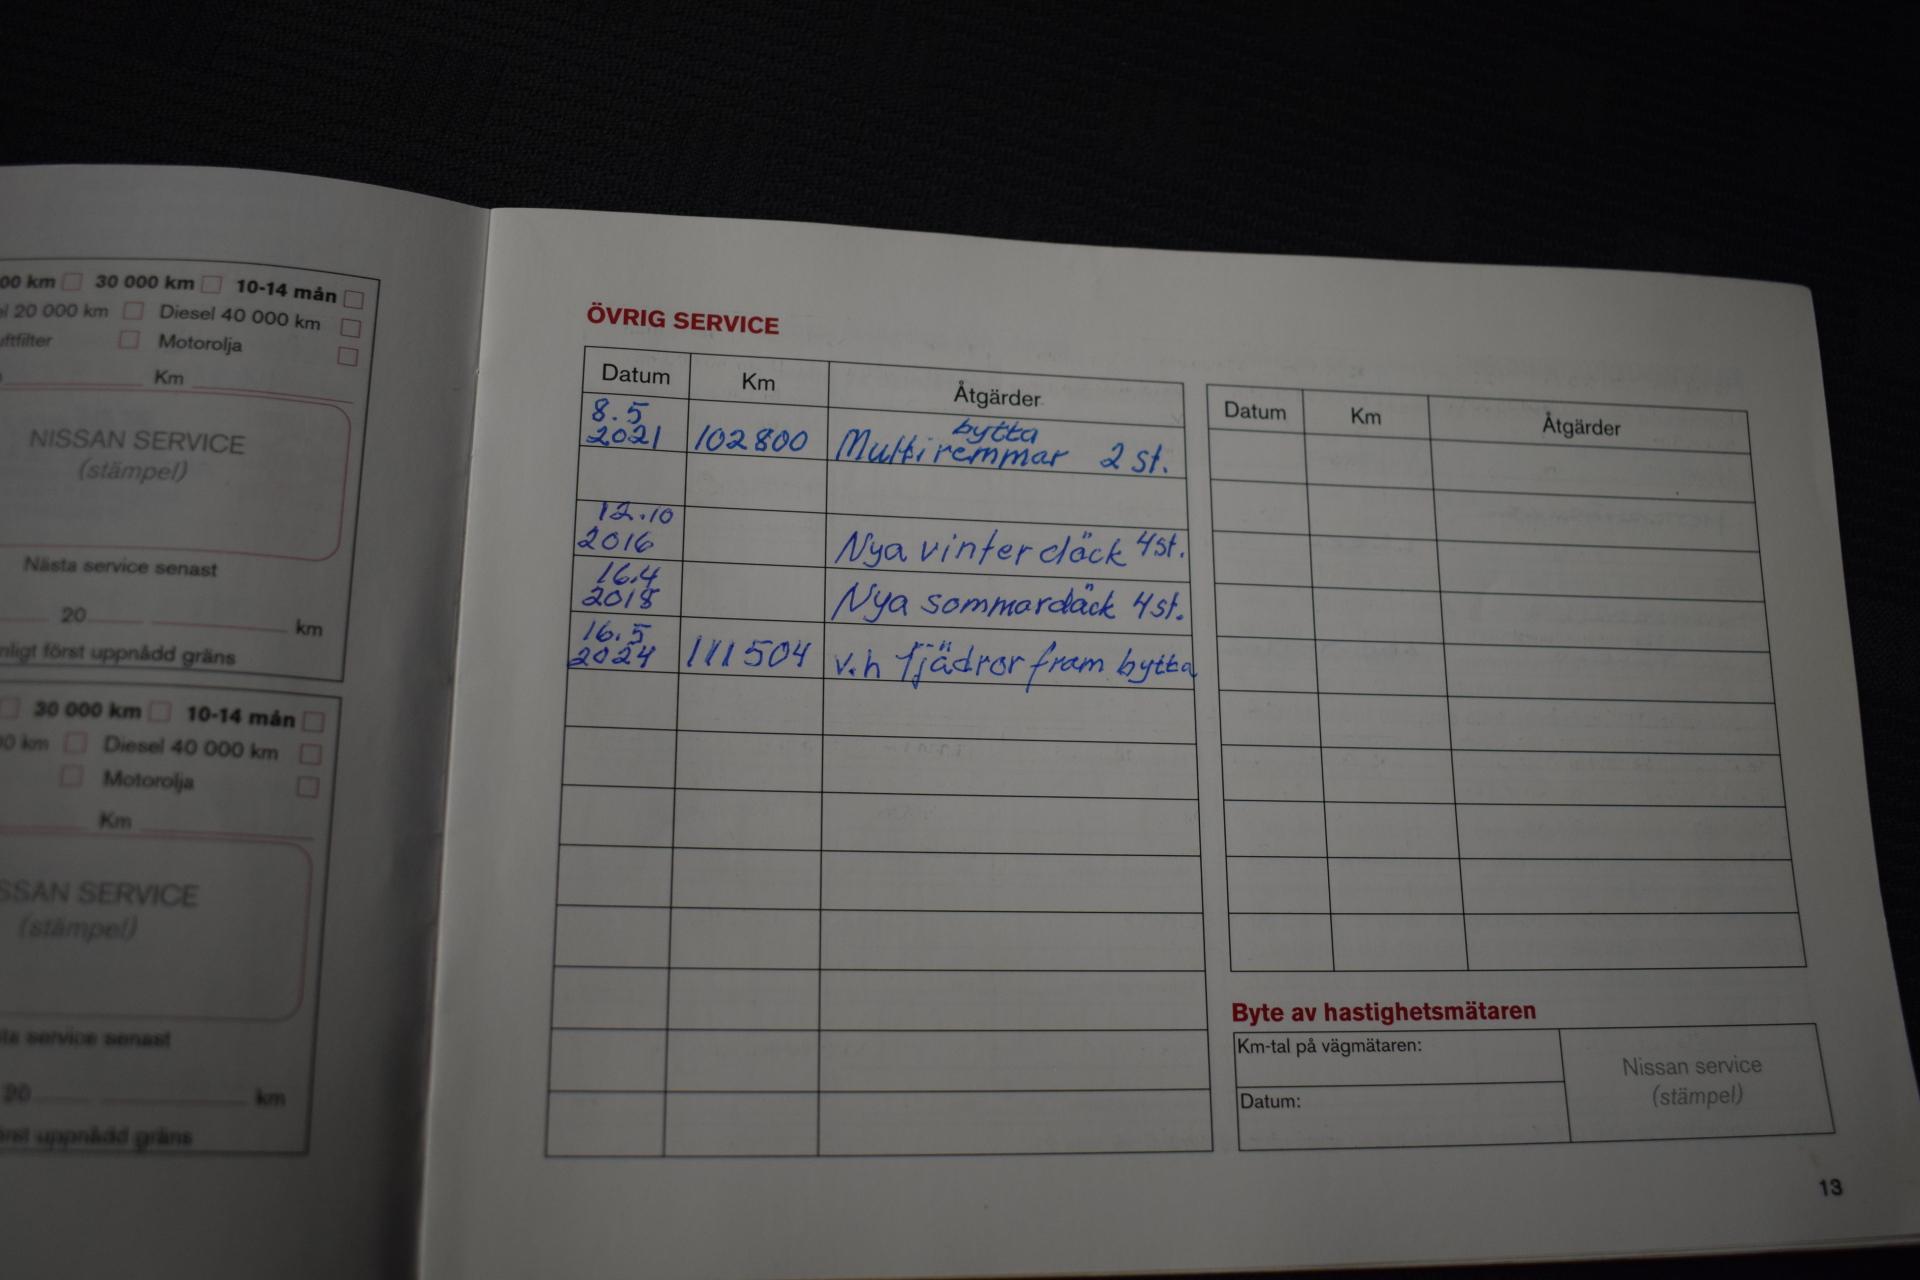 00 km 30 000 km 10-14 mån
20 000 km Diesel 40 000 km
Motorolja
Km
NISSAN SERVICE
(stämpel)
Nästa service senast
20 km
först uppnådd gräns
30 000 km 10-14 mån
km Diesel 40 000 km
Motorolja
Km
SSAN SERVICE
(stämpel)
service senast
20 km
uppnådd gräns
ÖVRIG SERVICE
Datum Km Åtgärder
8.5 bytta
2021 102800 Multiremmar 2 st.
12.10
2016 Nya vinterdäck 4st.
16.4
2018 Nya sommardäck 4st.
16.5
2024 111504 v.h fjädror fram bytta
Datum Km Åtgärder
Byte av hastighetsmätaren
Km-tal på vägmätaren:
Datum:
Nissan service
(stämpel)
13